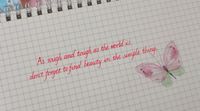 As rough and tough as the world is
don't forget to find beauty in the simple thing